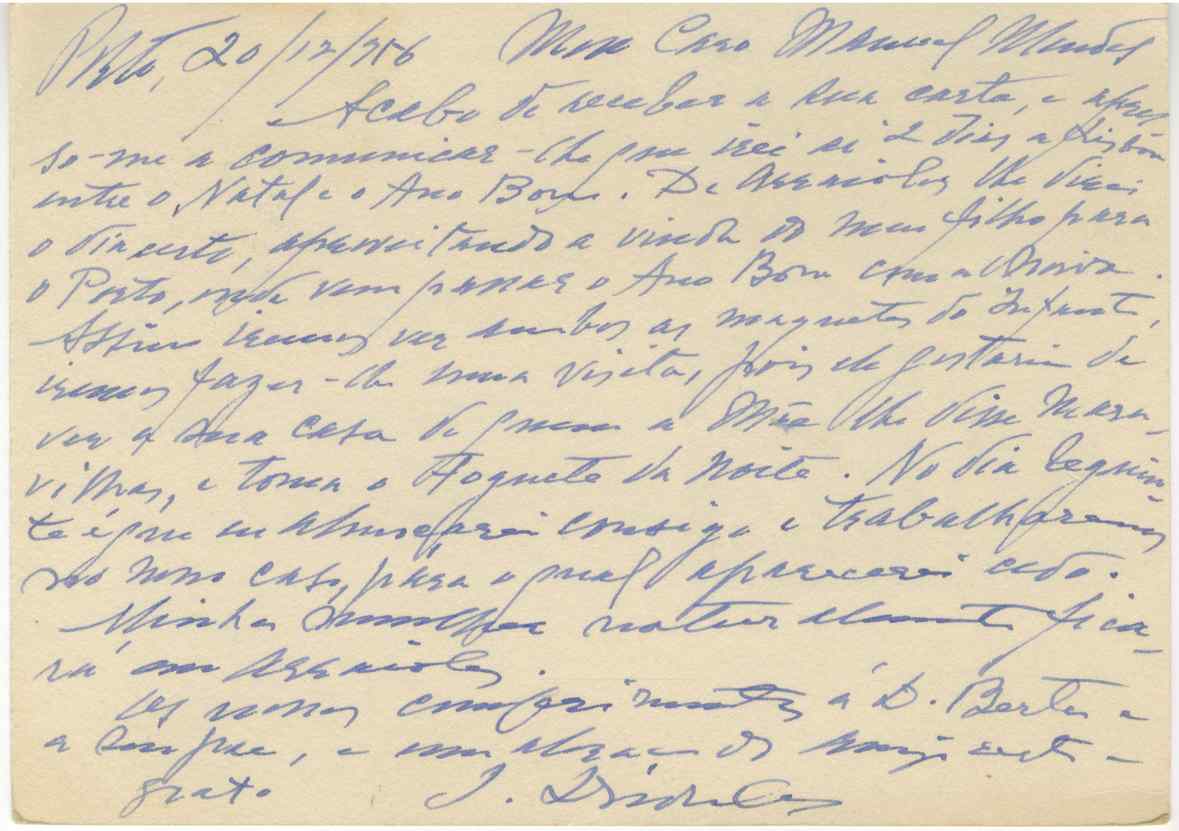 Porto, 20/12/956 Meu Caro Manuel Mendes
Acabo de receber a sua carta, e apres-
so-me a comunicar-lhe que irei aí 2 dias a Lisboa
entre o Natal e o Ano Bom. De Arraiolos lhe direi
o dia certo, aproveitando a vinda do meu filho para
o Porto, onde vem passar o Ano Bom com a Noiva.
Assim iremos ver ambos as maquetes do Infante,
iremos fazer-lhe uma visita, pois ele gostaria de
ver a sua casa de quem a Mãe lhe disse mara-
vilhas, e toma o Foguete da noite. No dia seguin-
te é que eu almoçarei consigo e trabalharemos
no nosso caso, para o qual aparecerei cedo.
Minha mulher naturalmente fica-
rá em Arraiolos.
Os nossos cumprimentos à D. Berta e
a seu pae, e um abraço do amigo certo e
grato
J.